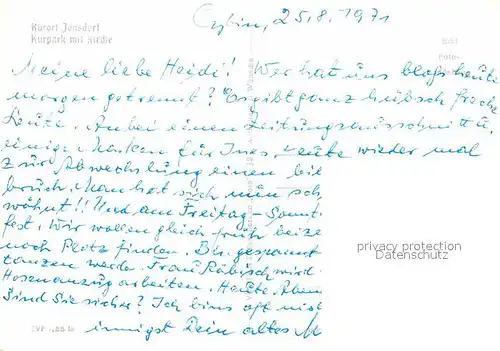 Oybin, 25.8.1971
Kurort Jonsdorf
Kurpark mit Kirche
Meine liebe Heidi! Wer hat uns bloß heute
morgen getrennt? Es gibt ganz hübsch freche
Leute. Anbei einen Zeitungsausschnitt u.
einige Marken für Ines. Heute wieder mal
zur Abwechslung einen
Man hat sich nun
wöhnt!! Und am Freitag - Sommer
fest. Wir wollen gleich früh
noch Platz finden. Bin gespannt
tanzen werde. Frau Räbisch wird
Hosenanzug arbeiten. Heute Aben
Sind Sie sicher? Ich bins oft nich
innigst Dein altes M
privacy protection
Datenschutz